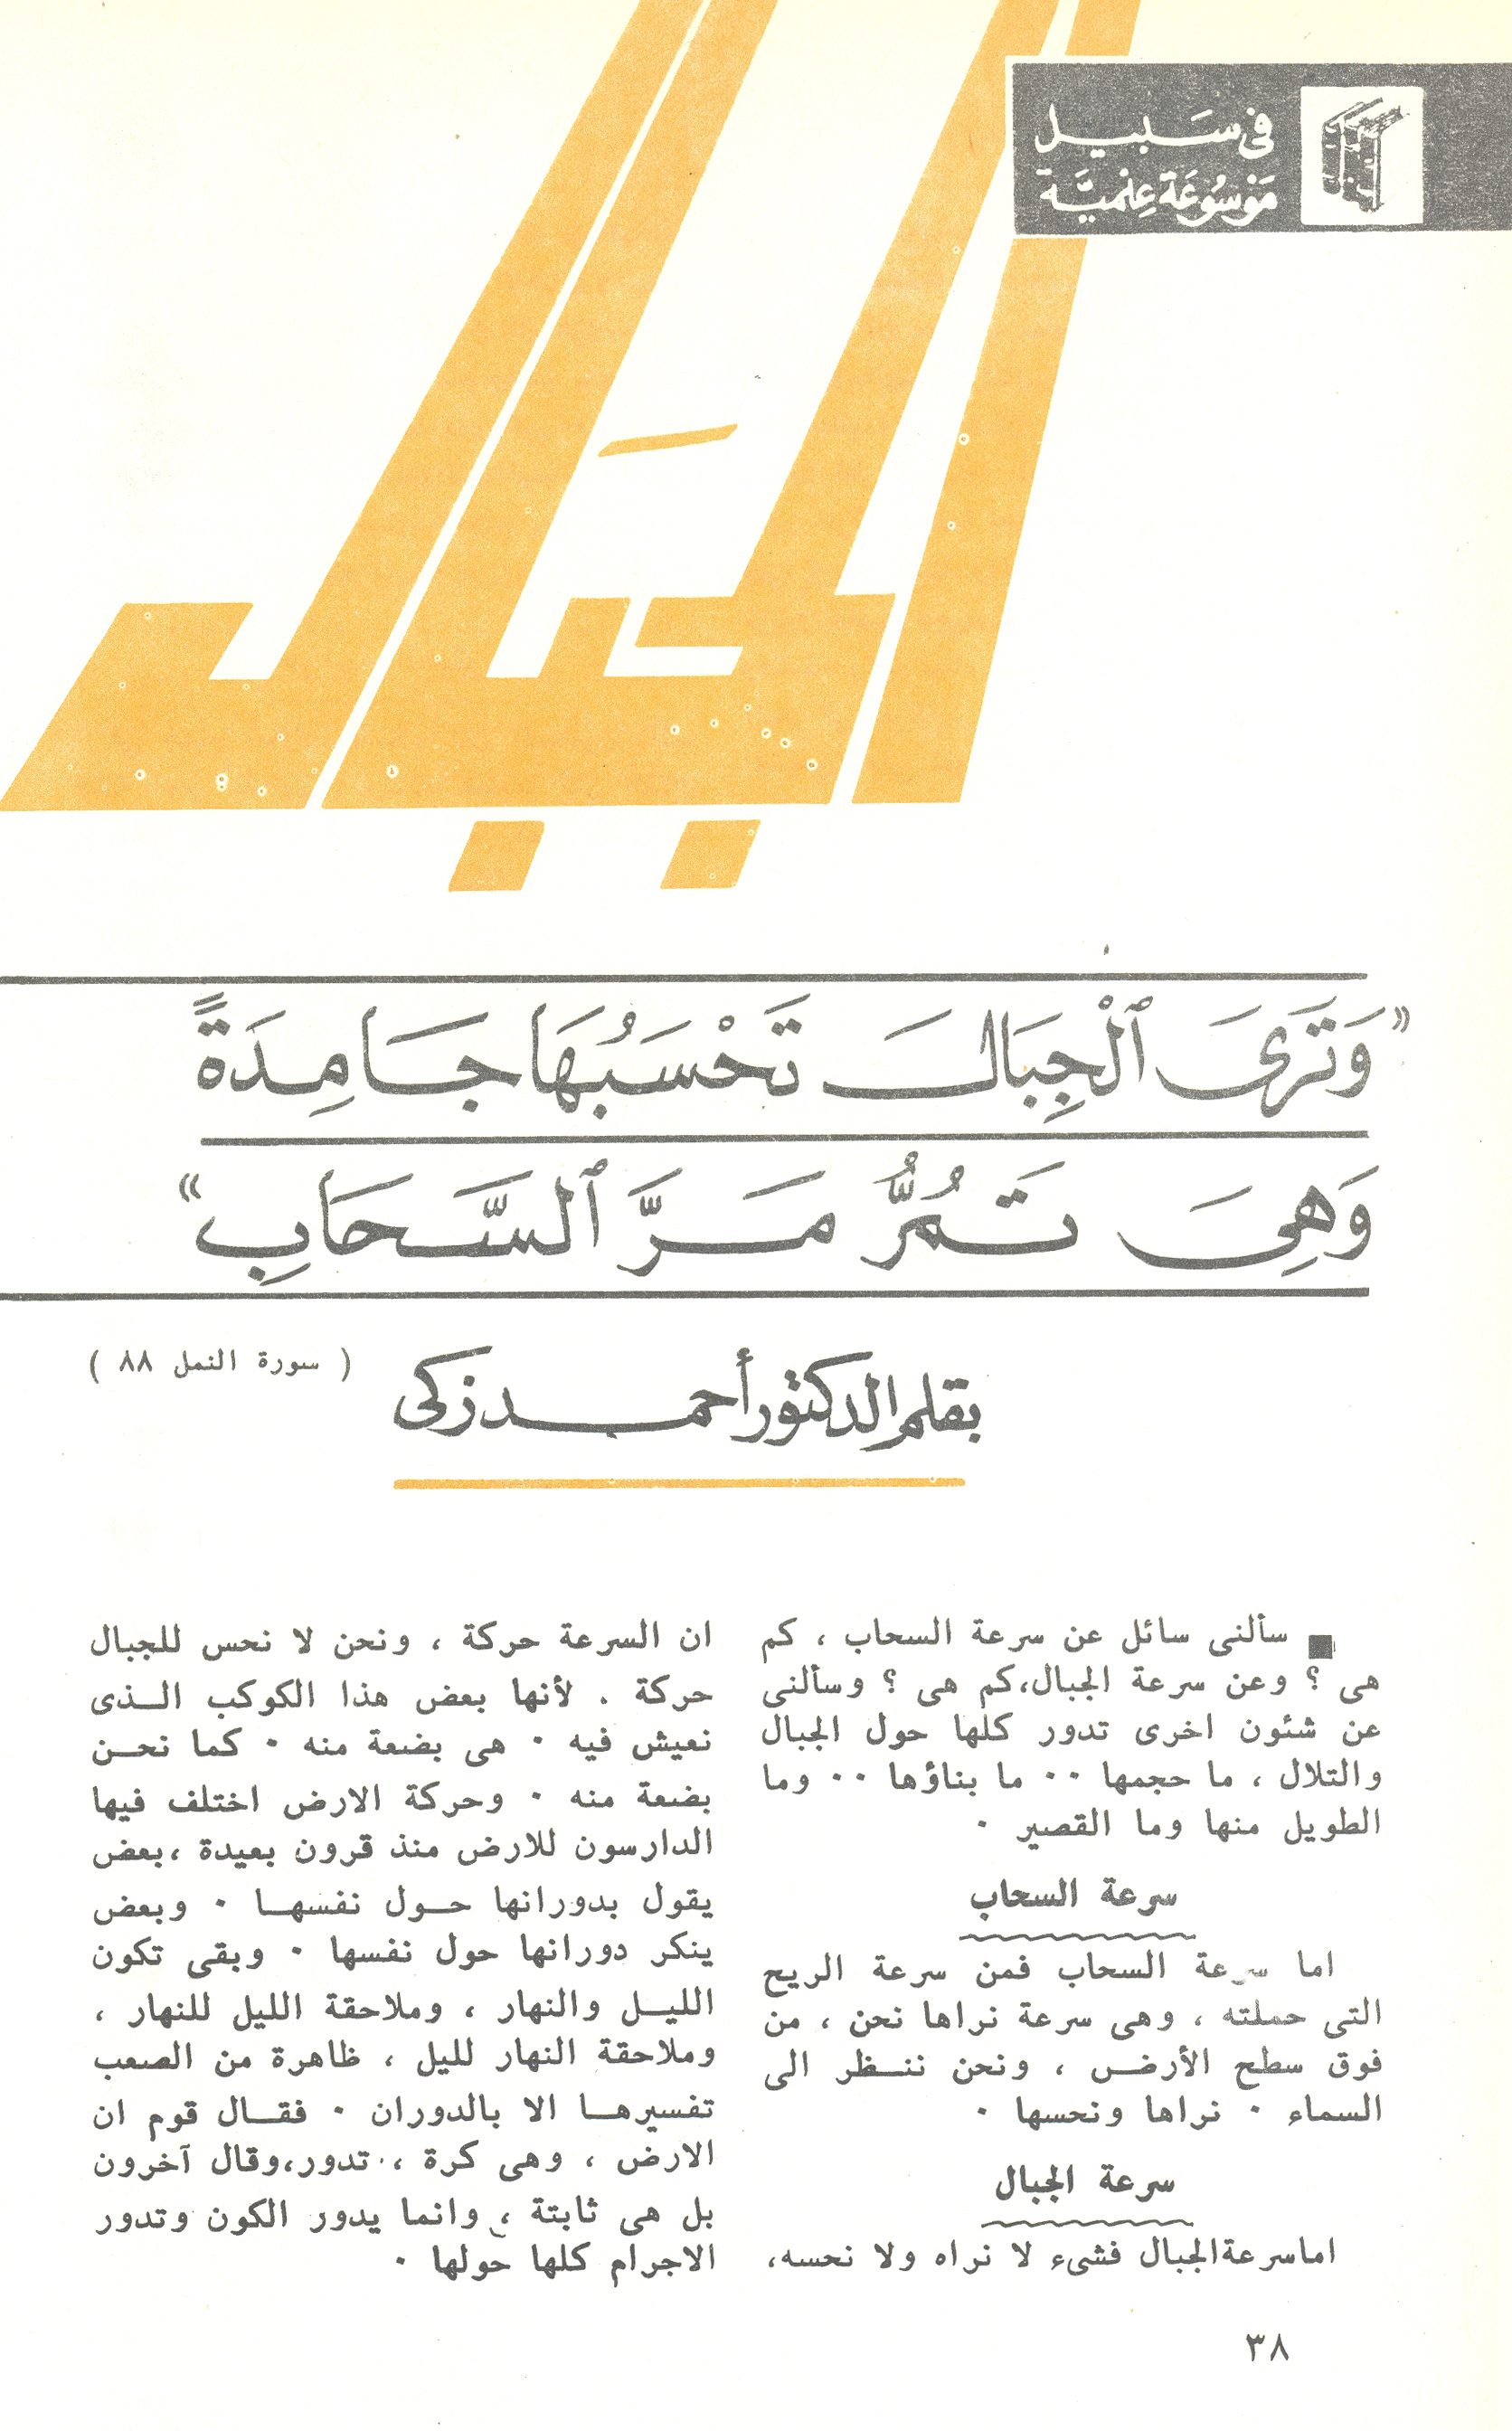 في سبيل
موسوعة علمية
الجبال
«وَتَرَى ٱلْجِبَالَ تَحْسَبُهَا جَامِدَةً
وَهِيَ تَمُرُّ مَرَّ ٱلسَّحَابِ»
( سورة النمل ٨٨ )
بقلم الدكتور أحمد زكى
سألنى سائل عن سرعة السحاب ، كم
هى ؟ وعن سرعة الجبال،كم هى ؟ وسألنى
عن شئون اخرى تدور كلها حول الجبال
والتلال ، ما حجمها ٠٠ ما بناؤها ٠٠ وما
الطويل منها وما القصير ٠
سرعة السحاب
اما سرعة السحاب فمن سرعة الريح
التى حملته ، وهى سرعة نراها نحن ، من
فوق سطح الأرض ، ونحن ننظر الى
السماء ٠ نراها ونحسها ٠
سرعة الجبال
اما سرعة الجبال فشىء لا نراه ولا نحسه،
ان السرعة حركة ، ونحن لا نحس للجبال
حركة . لأنها بعض هذا الكوكب الذى
نعيش فيه ٠ هى بضعة منه ٠ كما نحن
بضعة منه ٠ وحركة الارض اختلف فيها
الدارسون للارض منذ قرون بعيدة ،بعض
يقول بدورانها حول نفسها ٠ وبعض
ينكر دورانها حول نفسها ٠ وبقى تكون
الليل والنهار ، وملاحقة الليل للنهار ،
وملاحقة النهار لليل ، ظاهرة من الصعب
تفسيرها الا بالدوران ٠ فقال قوم ان
الارض ، وهى كرة ، تدور،وقال آخرون
بل هى ثابتة ، وانما يدور الكون وتدور
الاجرام كلها حولها ٠
٣٨